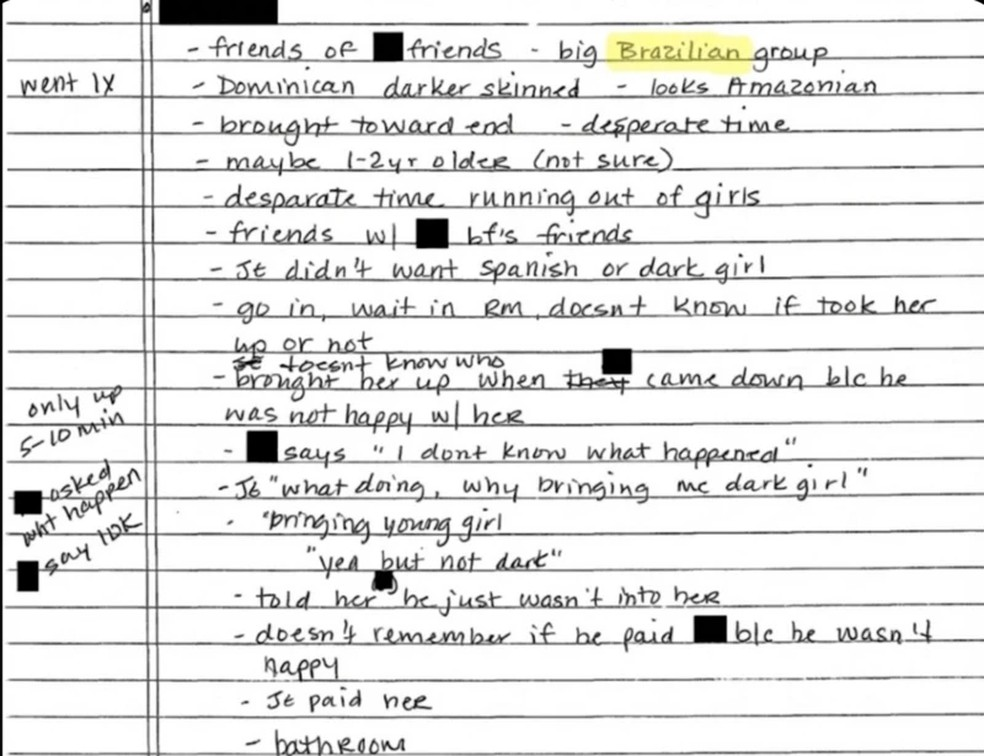 - friends of friends - big Brazilian group
went 1x
- Dominican darker skinned - looks Amazonian
- brought toward end - desperate time
- maybe 1-2yr older (not sure)
- desparate time running out of girls
- friends w/ bf's friends
- JE didn't want spanish or dark girl
- go in, wait in Rm, doesnt know if took her
up or not
doesnt know who
- brought her up when they came down b/c he
was not happy w/ her
only up
5-10 min
- says "I dont know what happened"
- JE "what doing, why bringing me dark girl"
asked
wht happen
say IDK
- "bringing young girl
"yea but not dark"
- told her he just wasn't into her
- doesn't remember if he paid b/c he wasn't
happy
- JE paid her
- bathroom